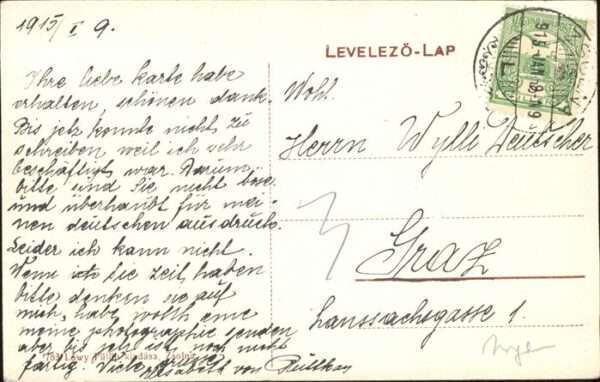 1915/I 9.
LEVELEZŐ-LAP
Ihre liebe karte habe
erhalten, schönen dank.
Bis jetz konnte nicht zu
schreiben weil ich sehr
beschäftigt war. Darum
bitte sind Sie nicht böse
und überhaubt für mei-
nen deutschen ausdruck.
Leider ich kann nicht.
Wenn ich Sie zeit haben
bitte denken sie auf
mich, habe wollth eine
meine photographie senden
aber bis jetz ist noch nicht
fertig. Viele
Elisabeth von Puttkay
Wohl.
Herrn Wylli Deutscher
Graz
Hanssachsgasse 1.
Lőwy Fülöp kiadása,